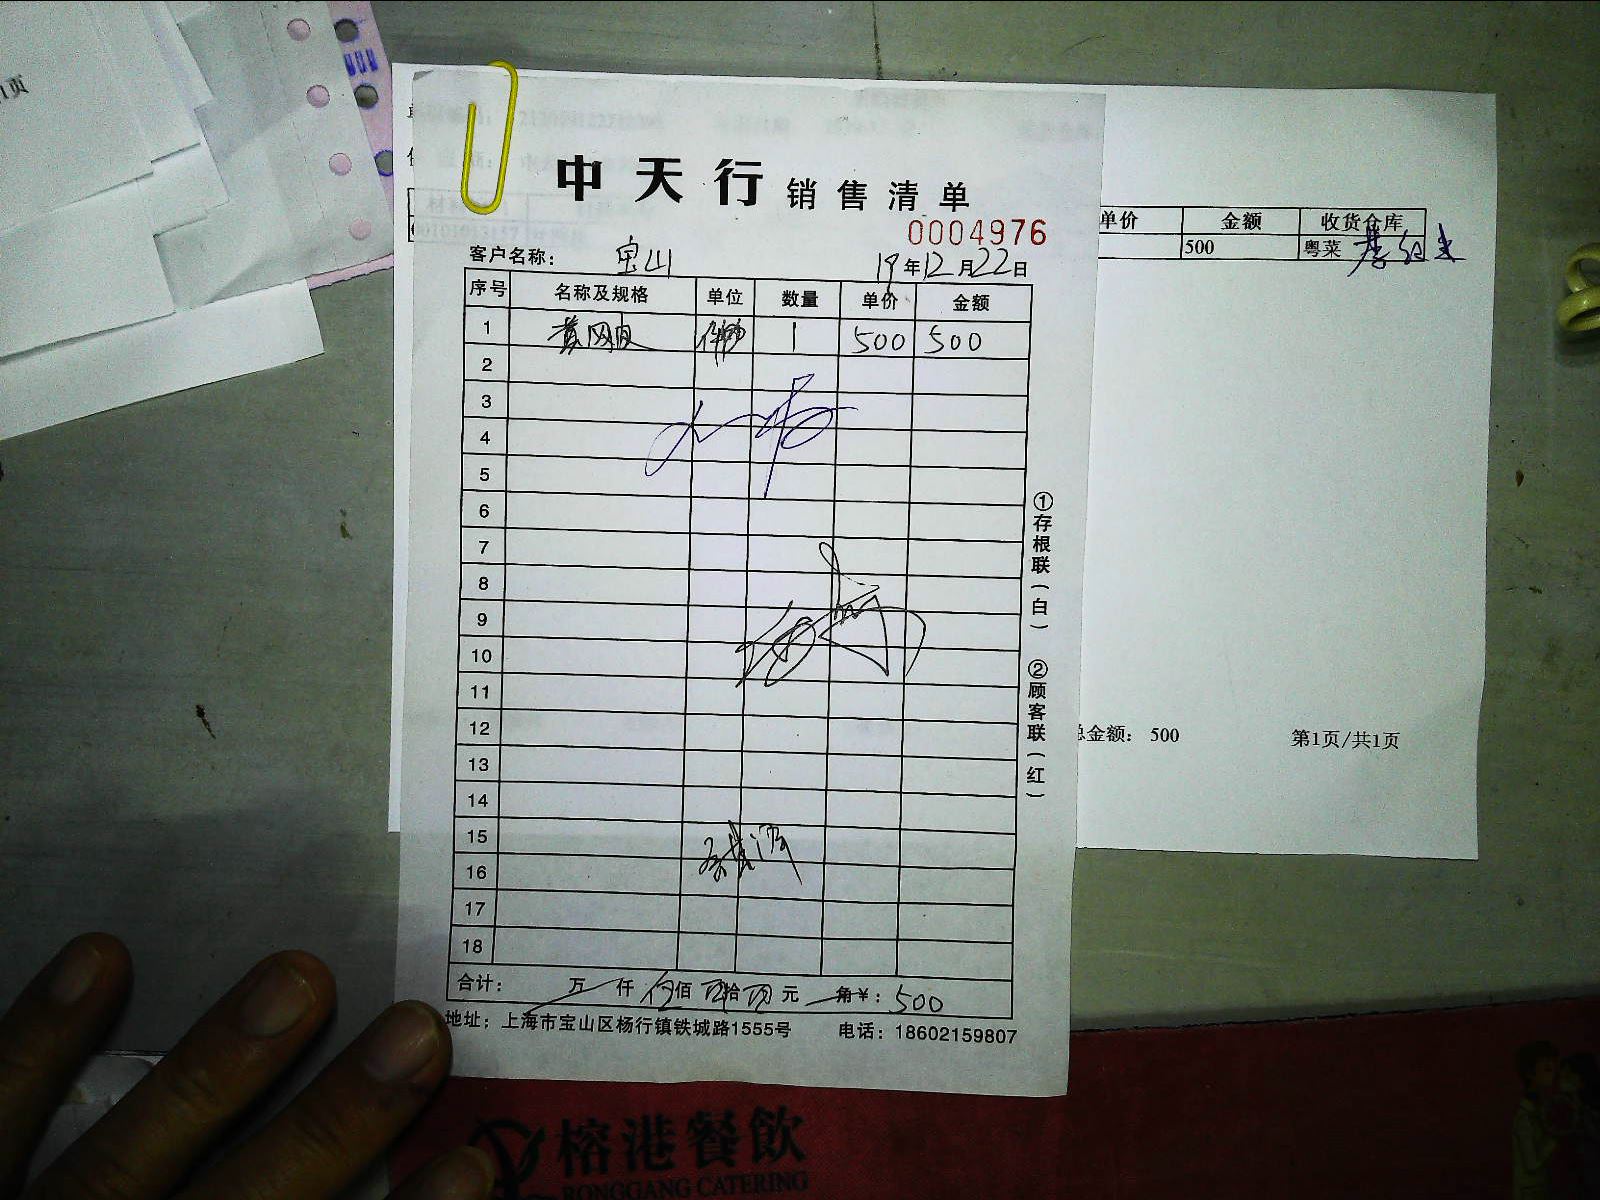 1页
中天行 销售清单
0004976
客户名称： 宝山 19年12月22日
序号 名称及规格 单位 数量 单价 金额
1 黄网 1 500 500
2
3
4
5
6
7
8
9
10
11
12
13
14
15
16
17
18
合计： 万 仟 伍佰 拾 元 角￥：500
地址：上海市宝山区杨行镇铁城路1555号 电话：18602159807
①存根联（白） ②顾客联（红）
单价 金额 收货仓库
500 粤菜
总金额： 500 第1页/共1页
榕港餐飲
RONGGANG CATERING